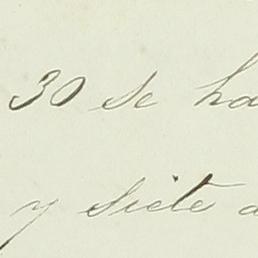 30 se ha
y siete a